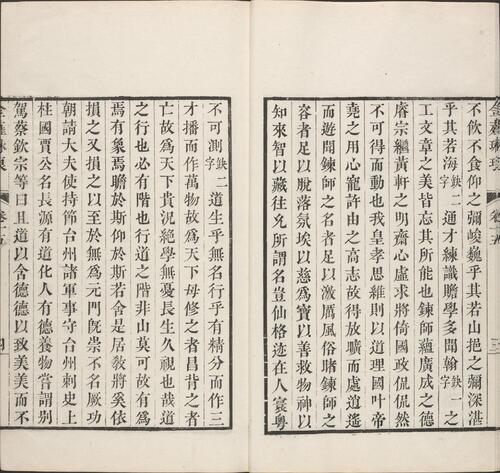 不飲不食仰之彌峻巍乎其若山挹之彌深湛
乎其若海缺二字通才練識贍學多聞翰缺一字之
工文章之美皆忘其所能也鍊師蘊廣成之德
睿宗繼黃軒之明齋心虛求將倚國政侃侃然
不可得而動也我皇孝思維則以道理國叶帝
堯之用心寵許由之高志故得放曠而處逍遙
而遊聞鍊師之名者足以激厲風俗睹鍊師之
容者足以脫落氛埃以慈爲寶以善救物神以
知來智以藏往允所謂名豈仙格迹在人寰粤
不可測缺二字道生乎無名行乎有精分而作三
才播而作萬物故爲天下母修之者昌背之者
亡故爲天下貴況絶學無憂長生久視也哉道
之行也必有階也行道之階非山莫可故有爲
焉有象焉瞻於斯仰於斯若舍是居教將奚依
損之又損之以至於無爲元門旣崇不名厥功
朝請大夫使持節台州諸軍事守台州刺史上
柱國賈公名長源有道化人有德養物嘗謂別
駕蔡欽宗等曰且道以含德德以致美美而不
金薤琳琅
四